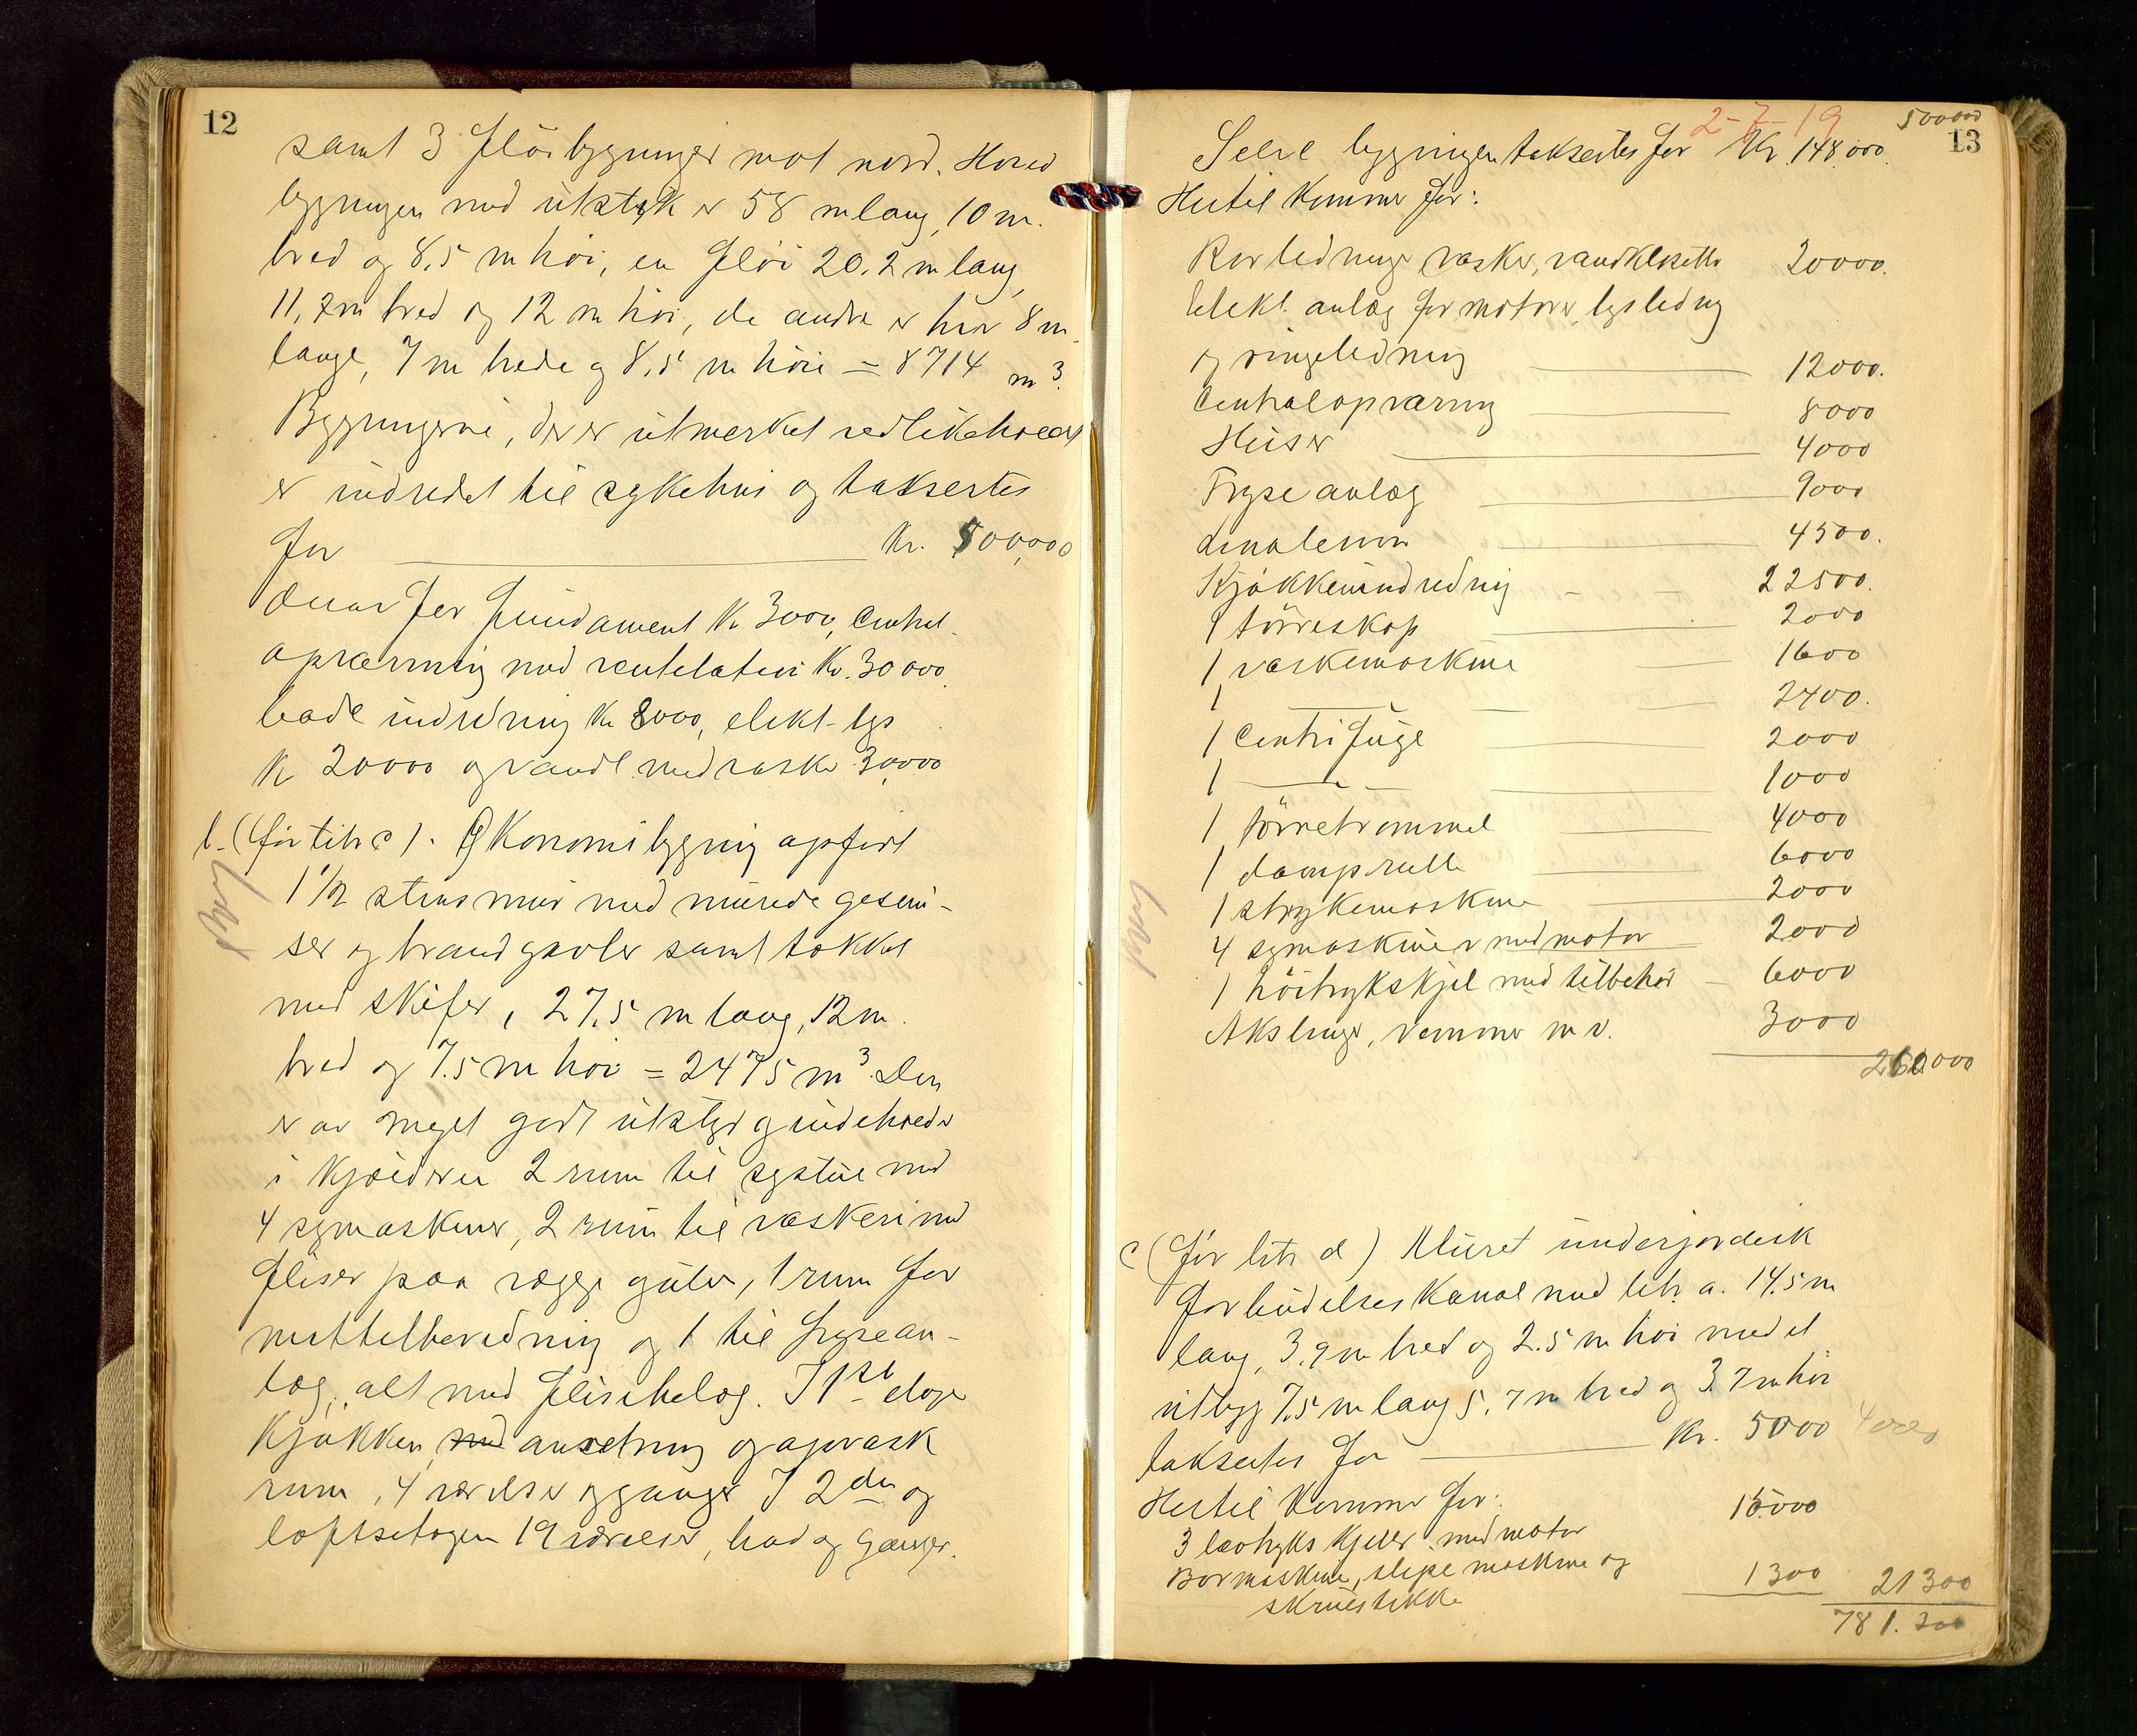 12
samt 3 flöibygninger mot nord. Hoved
bygningen med utstyk er 58 m lang, 10 m.
bred og 8,5 m höi, en flöi 20.2 m lang,
11,7 m bred og 12 m höi, de andre er hver 8 m
lange, 7 m brede og 8,5 m höie = 8714 m³.
Bygningerne, der er utmerket vedlikeholdt
er indredet til sykehus og takseres
for Kr. 500,000
derav for fundament Kr 3000, Central-
opvarming med ventilation Kr. 30 000
bade indredning Kr 8000, elekt. lys
Kr 20000 og vandl. med vaske 30,000
b. (för litr c). Økonomibygning opfört
1 1/2 stens mur med murede gesim-
ser og brandgavler samt tækket
med skifer, 27,5 m lang, 12 m.
bred og 7.5 m höi = 2475 m³. Den
er av meget godt utstyr og indeholder
i kjælderen 2 rum til systue med
4 symaskiner, 2 rum til vaskeri med
fliser paa vægge gulv, 1 rum for
mattilberedning og 1 til fryse an-
læg, alt med flisebelæg. I 1ste etage
Kjøkken, med anretning og opvask
rum, 4 værelser og gange I 2den og
loftsetagen 19 værelser, bad og ganger.
2-7-19
500000
13
Selve bygningen takseres for Kr. 148.000.
Hertil kommer for:
Rörledninger vasker, vandklosetter 20000.
Elekt. anlæg for motorer, lysledning
og ringeledning 12000.
Centralopvarming 8000
Heiser 4000
Fryseanlæg 9000
Linoleum 4500.
Kjøkkenindredning 22500.
1 törreskap 2000
1 vaskemaskine 1600
1 2400.
1 Centrifuge 2000
1 1000
1 törretrommel 4000
1 damprulle 6000
1 strykemaskine 2000
4 symaskiner med motor 2000
1 höitrykskjel med tilbehör 6000
Akslinger, remmer m v. 3000
260.000
c (för litr d) Muret underjordisk
forbindelses Kanal med litr. a. 14.5 m
lang, 3.9 m bred og 2.5 m höi med et
utbygg 7.5 m lang 5.7 m bred og 3.7 m höi
takseres for Kr. 5000
Hertil kommer for:
3 lavtryks kjeler med motor 15000
Bormaskine, slipe maskine og
skruestikke 1300 21300
781.300